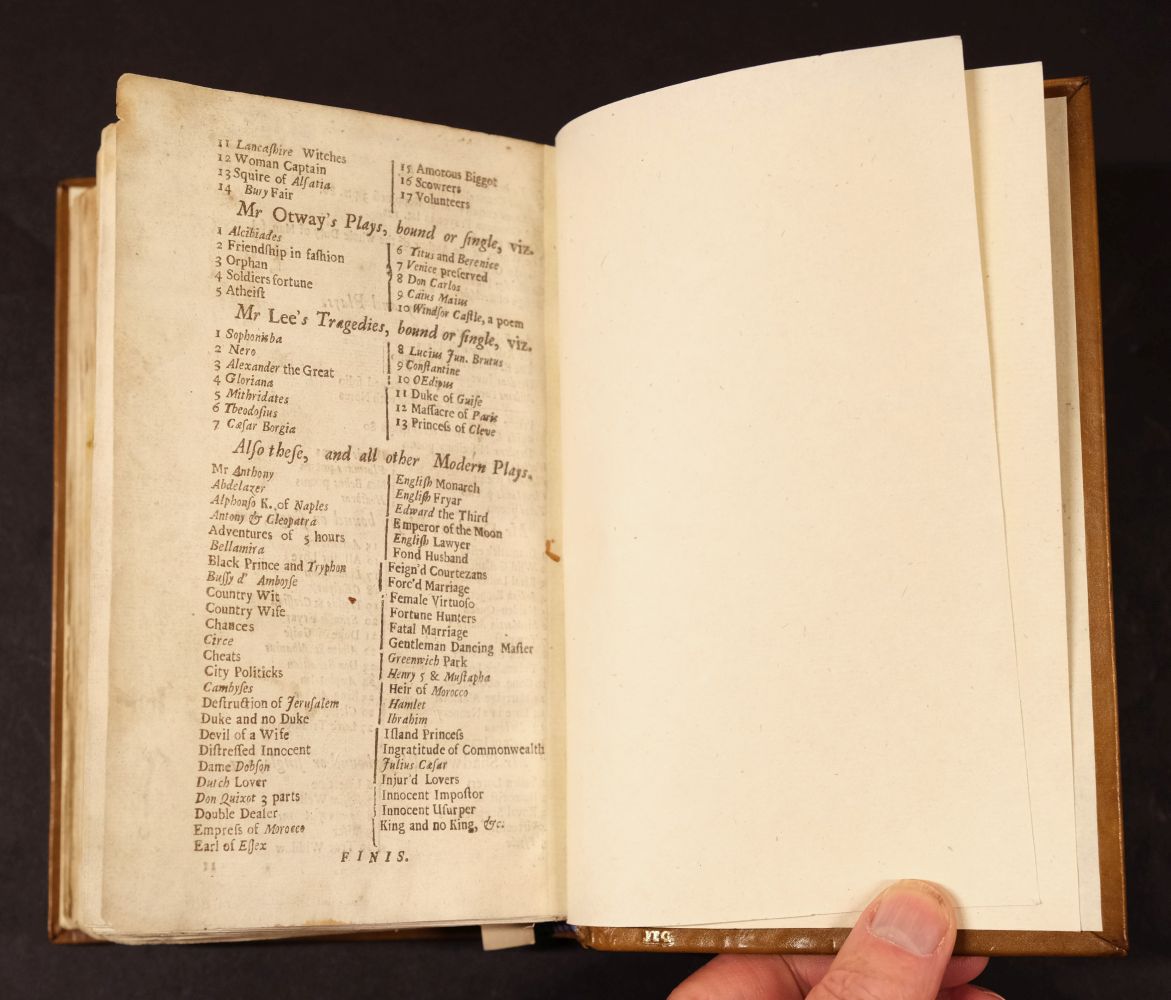 11 Lancaſhire Witches
12 Woman Captain
13 Squire of Alſatia
14 Bury Fair
15 Amorous Biggot
16 Scowrers
17 Volunteers
Mr Otway's Plays, bound or ſingle, viz.
1 Alcibiades
2 Friendſhip in faſhion
3 Orphan
4 Soldiers fortune
5 Atheiſt
6 Titus and Berenice
7 Venice preſerved
8 Don Carlos
9 Caius Maius
10 Windſor Caſtle, a poem
Mr Lee's Tragedies, bound or ſingle, viz.
1 Sophonisba
2 Nero
3 Alexander the Great
4 Gloriana
5 Mithridates
6 Theodoſius
7 Cæſar Borgia
8 Lucius Jun. Brutus
9 Conſtantine
10 OEdipus
11 Duke of Guiſe
12 Maſſacre of Paris
13 Princeſs of Cleve
Alſo theſe, and all other Modern Plays.
Mr Anthony
Abdelazer
Alphonſo K. of Naples
Antony & Cleopatra
Adventures of 5 hours
Bellamira
Black Prince and Tryphon
Buſſy d' Amboyſe
Country Wit
Country Wife
Chances
Circe
Cheats
City Politicks
Cambyſes
Deſtruction of Jeruſalem
Duke and no Duke
Devil of a Wife
Diſtreſſed Innocent
Dame Dobſon
Dutch Lover
Don Quixot 3 parts
Double Dealer
Empreſs of Morocco
Earl of Eſſex
Engliſh Monarch
Engliſh Fryar
Edward the Third
Emperor of the Moon
Engliſh Lawyer
Fond Husband
Feign'd Courtezans
Forc'd Marriage
Female Virtuoſo
Fortune Hunters
Fatal Marriage
Gentleman Dancing Maſter
Greenwich Park
Henry 5 & Muſtapha
Heir of Morocco
Hamlet
Ibrahim
Iſland Princeſs
Ingratitude of Commonwealth
Julius Cæſar
Injur'd Lovers
Innocent Impoſtor
Innocent Uſurper
King and no King, &c.
FINIS.